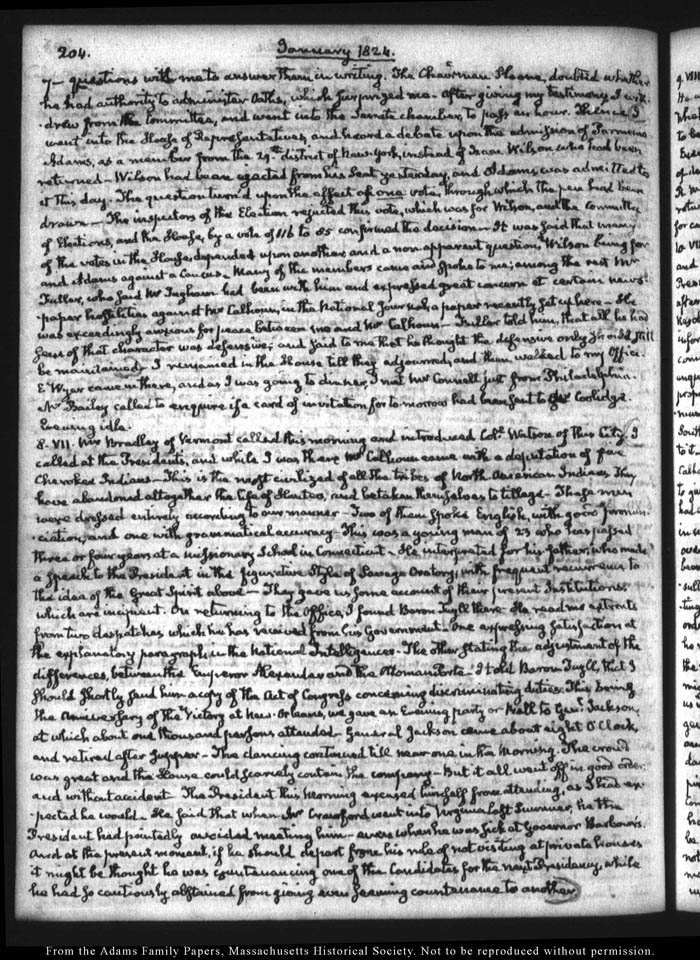 204.
January 1824.
7— questions with me to answer them in writing. The Chairman Sloane, doubted whether
he had authority to administer Oaths, which surprized me. After giving my testimony I with-
drew from the Committee, and went into the Senate chamber, to pass an hour. Thence I
went into the House of Representatives, and heard a debate upon the admission of Parmenio
Adams, as a member from the 29th. district of New-York, instead of Isaac Wilson who had been
returned— Wilson had been ejected from his Seat yesterday, and Adams was admitted to
it this day. The question turn'd upon the effect of one vote, through which the pen had been
drawn— The inspectors of the Election rejected this vote, which was for Wilson, and the Committee
of Elections, and the House, by a vote of 116 to 85 confirmed the decision— It was said that many
of the votes in the House, depended upon another, and a non-apparent question, Wilson being for
and Adams against a Caucus— Many of the members came and spoke to me; among the rest Mr
Fuller, who said Mr Ingham had been with him and expressed great concern at certain news-
paper hostilities against Mr Calhoun, in the National Journal, a paper recently set up here— He
was exceedingly anxious for peace between me and Mr Calhoun— Fuller told him, that all he had
seen of that character was defensive; and said to me that he thought the defensive only should still
be maintained— I remained in the House till they adjourned, and then walked to my Office.
E Wyer came in there, and as I was going to dinner, I met Mr Connell just from Philadelphia.
Mr Bailey called to enquire if a card of invitation for to-morrow had been sent to Coolidge.
Evening idle.
8. VII. Mr Bradley of Vermont called this morning and introduced Coll. Watson of this City. I
called at the Presidents, and while I was there Mr Calhoun came with a deputation of five
Cherokee Indians— This is the most civilized of all the tribes of North American Indians. They
have abandoned altogether the life of Hunters, and betaken themselves to tillage— These men
were dressed entirely according to our manner— Two of them spoke English, with good pronun-
ciation, and one with grammatical accuracy— This was a young man of 23 who has passed
three or four years at a missionary School in Connecticut— He interpreted for his father, who made
a Speech to the President in the figurative Style of Savage Oratory, with frequent recurrence to
the idea of the Great Spirit above— They gave us some account of their present Institutions,
which are incipient. On returning to the Office, I found Baron Tuyll there— He read me extracts
from two despatches which he has received from his Government— One expressing satisfaction at
the explanatory paragraph in the National Intelligencer— The other stating the adjustment of the
differences, between the Emperor Alexander and the Ottoman Porte— I told Baron Tuyll, that I
should shortly send him a copy of the Act of Congress concerning discriminating duties. This being
the Anniversary of the Victory at New-Orleans, we gave an Evening party or Ball to Genl. Jackson,
at which about one thousand persons attended— General Jackson came about eight O'Clock,
and retired after supper— The dancing continued till near one in the Morning. The crowd
was great and the House could scarcely contain the company— But it all went off in good order,
and without accident— The President this Morning excused himself from attending, as I had ex-
pected he would— He said that when Mr Crawford went into Virginia last Summer, he the
President had pointedly avoided meeting him— even when he was sick at Governor Barbour's.
And at the present moment, if he should depart from his rule of not visiting at private houses
it might be thought he was countenancing one of the Candidates for the next Presidency, while
he had so cautiously abstained from giving even seeming countenance to another
From the Adams Family Papers, Massachusetts Historical Society. Not to be reproduced without permission.